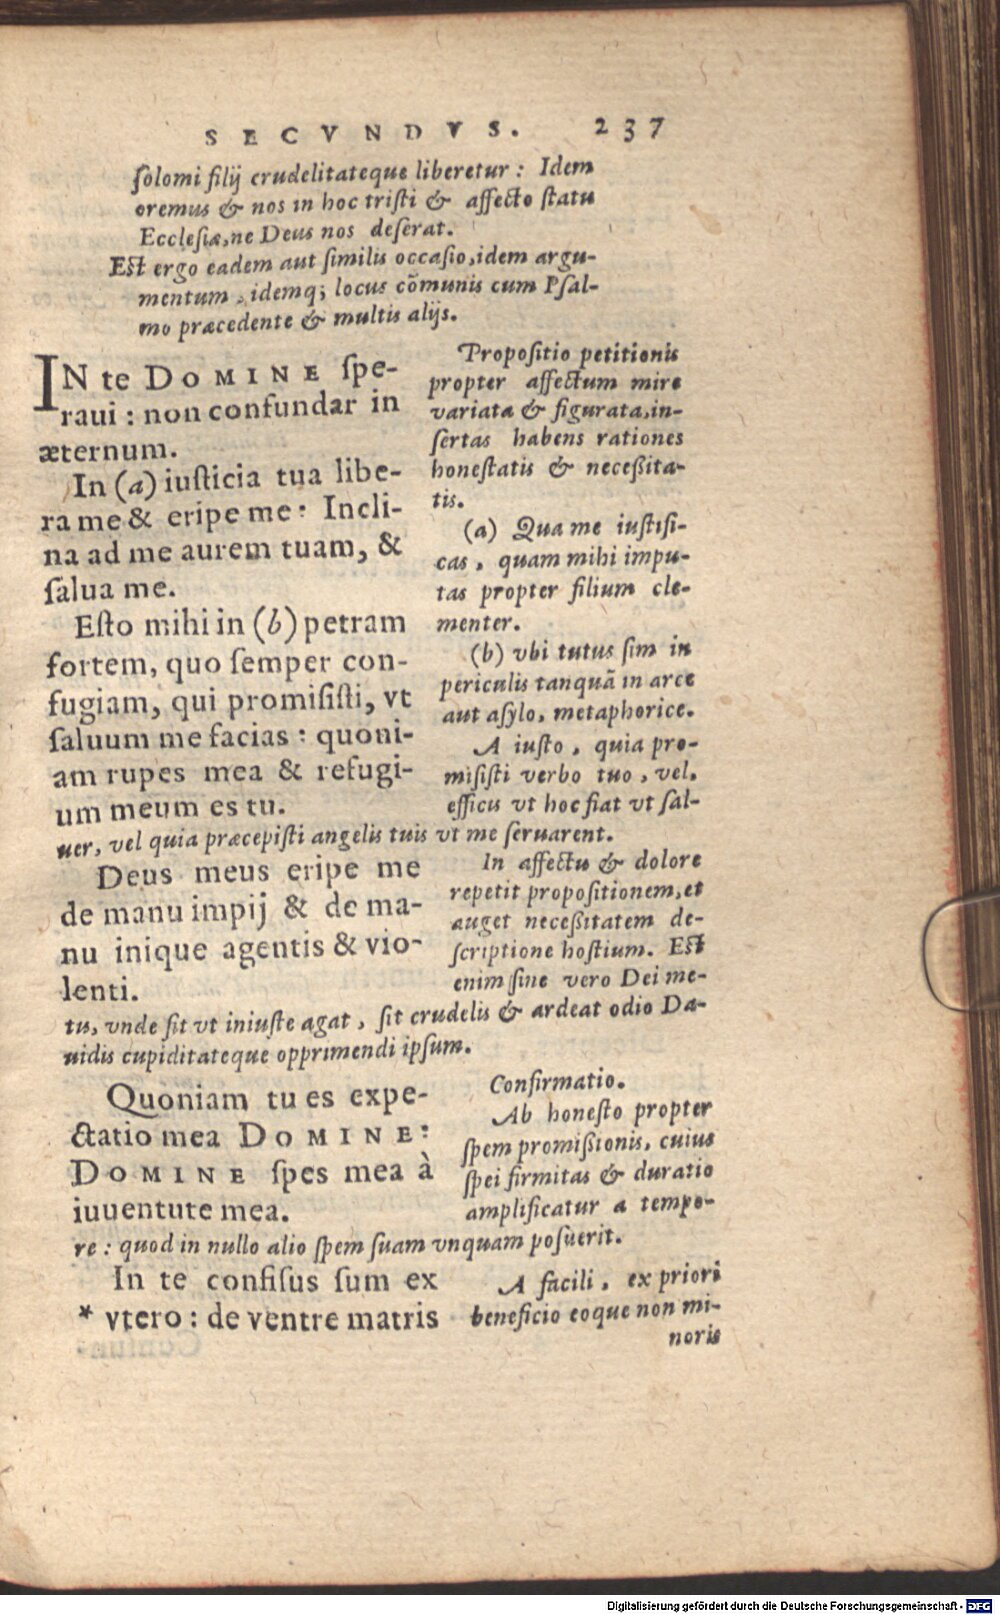 SECVNDVS. 237
ſolomi filij crudelitateque liberetur: Idem
oremus & nos in hoc triſti & affecto ſtatu
Eccleſiæ, ne Deus nos deſerat.
Eſt ergo eadem aut ſimilis occaſio, idem argu-
mentum, idemq; locus cõmunis cum Pſal-
mo præcedente & multis alijs.
IN te DOMINE ſpe-
raui: non confundar in
æternum.
In (a) iuſticia tua libe-
ra me & eripe me: Incli-
na ad me aurem tuam, &
ſalua me.
Eſto mihi in (b) petram
fortem, quo ſemper con-
fugiam, qui promiſiſti, vt
ſaluum me facias: quoni-
am rupes mea & refugi-
um meum es tu.
Propoſitio petitionis
propter affectum mire
variata & figurata, in-
ſertas habens rationes
honeſtatis & neceßita-
tis.
(a) Qua me iuſtifi-
cas, quam mihi impu-
tas propter filium cle-
menter.
(b) vbi tutus ſim in
periculis tanquã in arce
aut aſylo, metaphorice.
A iuſto, quia pro-
miſiſti verbo tuo, vel,
efficis vt hoc fiat vt ſal-
uer, vel quia præcepiſti angelis tuis vt me ſeruarent.
Deus meus eripe me
de manu impij & de ma-
nu inique agentis & vio-
lenti.
In affectu & dolore
repetit propoſitionem, et
auget neceßitatem de-
ſcriptione hoſtium. Eſt
enim ſine vero Dei me-
tu, vnde fit vt iniuſte agat, ſit crudelis & ardeat odio Da-
uidis cupiditateque opprimendi ipſum.
Quoniam tu es expe-
ctatio mea DOMINE:
DOMINE ſpes mea à
iuuentute mea.
Confirmatio.
Ab honeſto propter
ſpem promißionis, cuius
ſpei firmitas & duratio
amplificatur a tempo-
re: quod in nullo alio ſpem ſuam vnquam poſuerit.
In te confiſus ſum ex
* vtero: de ventre matris
A facili, ex priori
beneficio eoque non mi-
noris
Digitalisierung gefördert durch die Deutsche Forschungsgemeinschaft - DFG